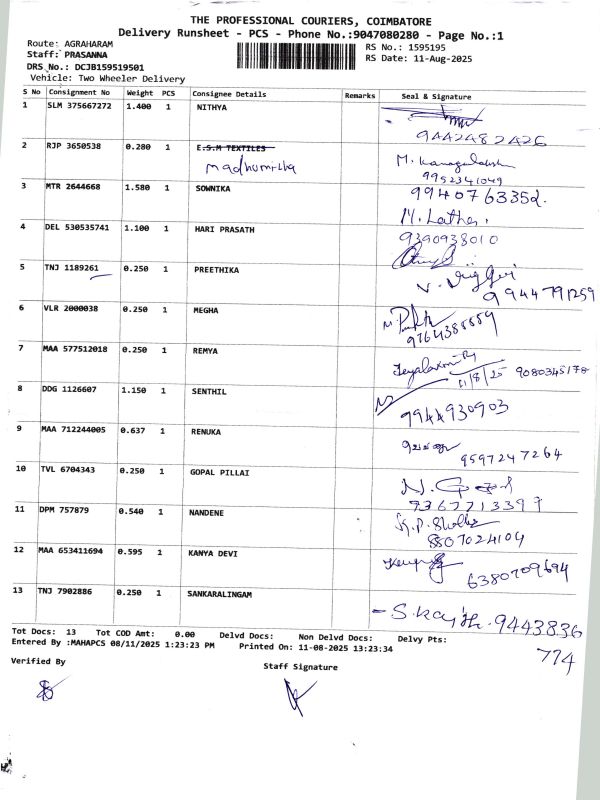 THE PROFESSIONAL COURIERS, COIMBATORE
Delivery Runsheet - PCS - Phone No.:9047080280 - Page No.:1
Route: AGRAHARAM
RS No.: 1595195
Staff: PRASANNA
RS Date: 11-Aug-2025
DRS No.: DCJB159519501
Vehicle: Two Wheeler Delivery
S No Consignment No Weight PCS Consignee Details Remarks Seal & Signature
1 SLM 375667272 1.400 1 NITHYA
9442482426
2 RJP 3650538 0.280 1 E.S.M TEXTILES
madhumitha
M.
9952341049
3 MTR 2644668 1.580 1 SOWNIKA
9940763352.
M. Latha.
4 DEL 530535741 1.100 1 HARI PRASATH
9390938010
5 TNJ 1189261 0.250 1 PREETHIKA
V.
9944791259
6 VLR 2000038 0.250 1 MEGHA
7 MAA 577512018 0.250 1 REMYA
11/8/25 9080345178
8 DDG 1126607 1.150 1 SENTHIL
9944930903
9 MAA 712244005 0.637 1 RENUKA
9597247264
10 TVL 6704343 0.250 1 GOPAL PILLAI
N.
7367713397
11 DPM 757879 0.540 1 NANDENE
8807024104
12 MAA 653411694 0.595 1 KANYA DEVI
6380709694
13 TNJ 7902886 0.250 1 SANKARALINGAM
9443836
774
Tot Docs: 13 Tot COD Amt: 0.00 Delvd Docs: Non Delvd Docs: Delvy Pts:
Entered By :MAHAPCS 08/11/2025 1:23:23 PM Printed On: 11-08-2025 13:23:34
Verified By
Staff Signature